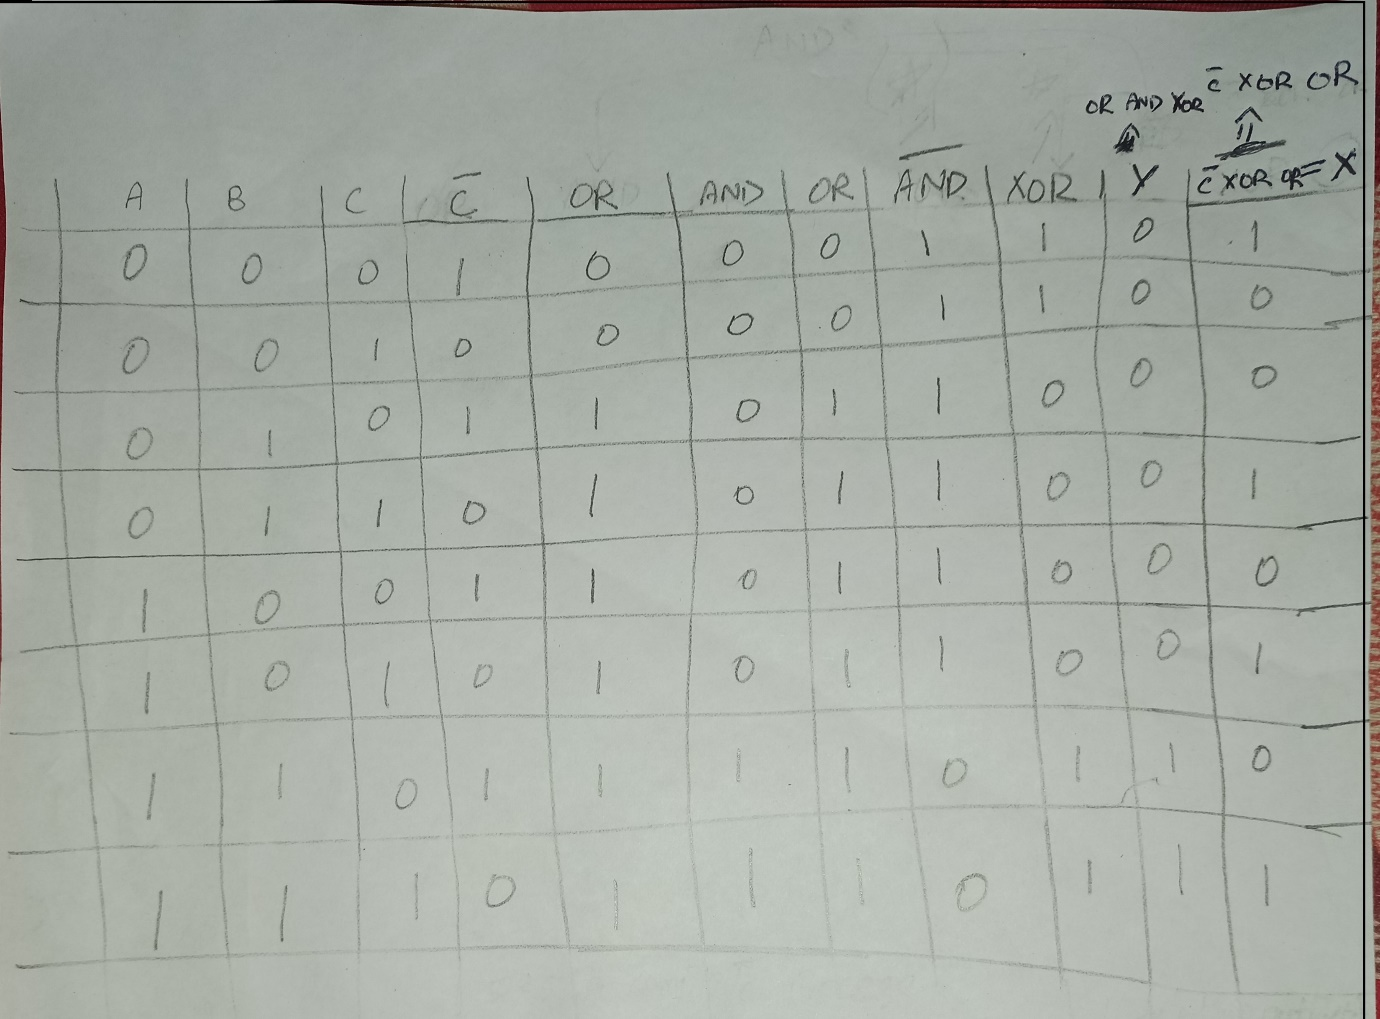 C̅ XOR OR
OR AND XOR
A B C C̅ OR AND OR A̅N̅D̅ XOR Y C̅ XOR OR = X
0 0 0 1 0 0 0 1 1 0 1
0 0 1 0 0 0 0 1 1 0 0
0 1 0 1 1 0 1 1 0 0 0
0 1 1 0 1 0 1 1 0 0 1
1 0 0 1 1 0 1 1 0 0 0
1 0 1 0 1 0 1 1 0 0 1
1 1 0 1 1 1 1 0 1 1 0
1 1 1 0 1 1 1 0 1 1 1